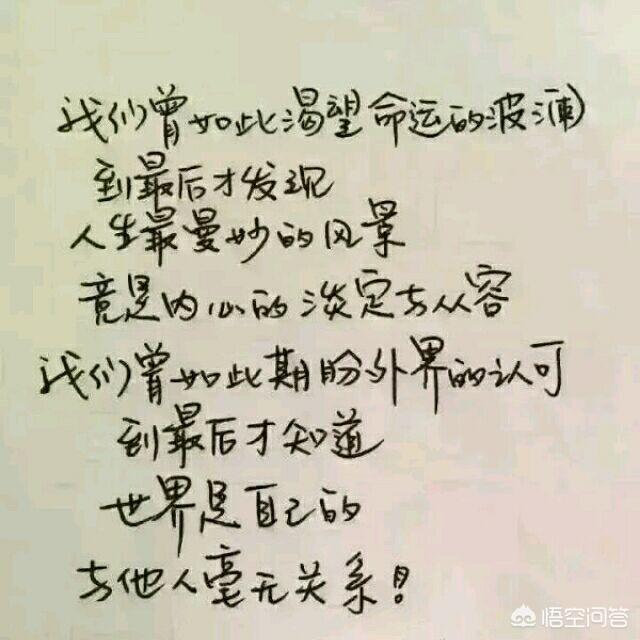 我们曾如此渴望命运的波澜
到最后才发现
人生最曼妙的风景
竟是内心的淡定与从容
我们曾如此期盼外界的认可
到最后才知道
世界是自己的
与他人毫无关系!
悟空问答